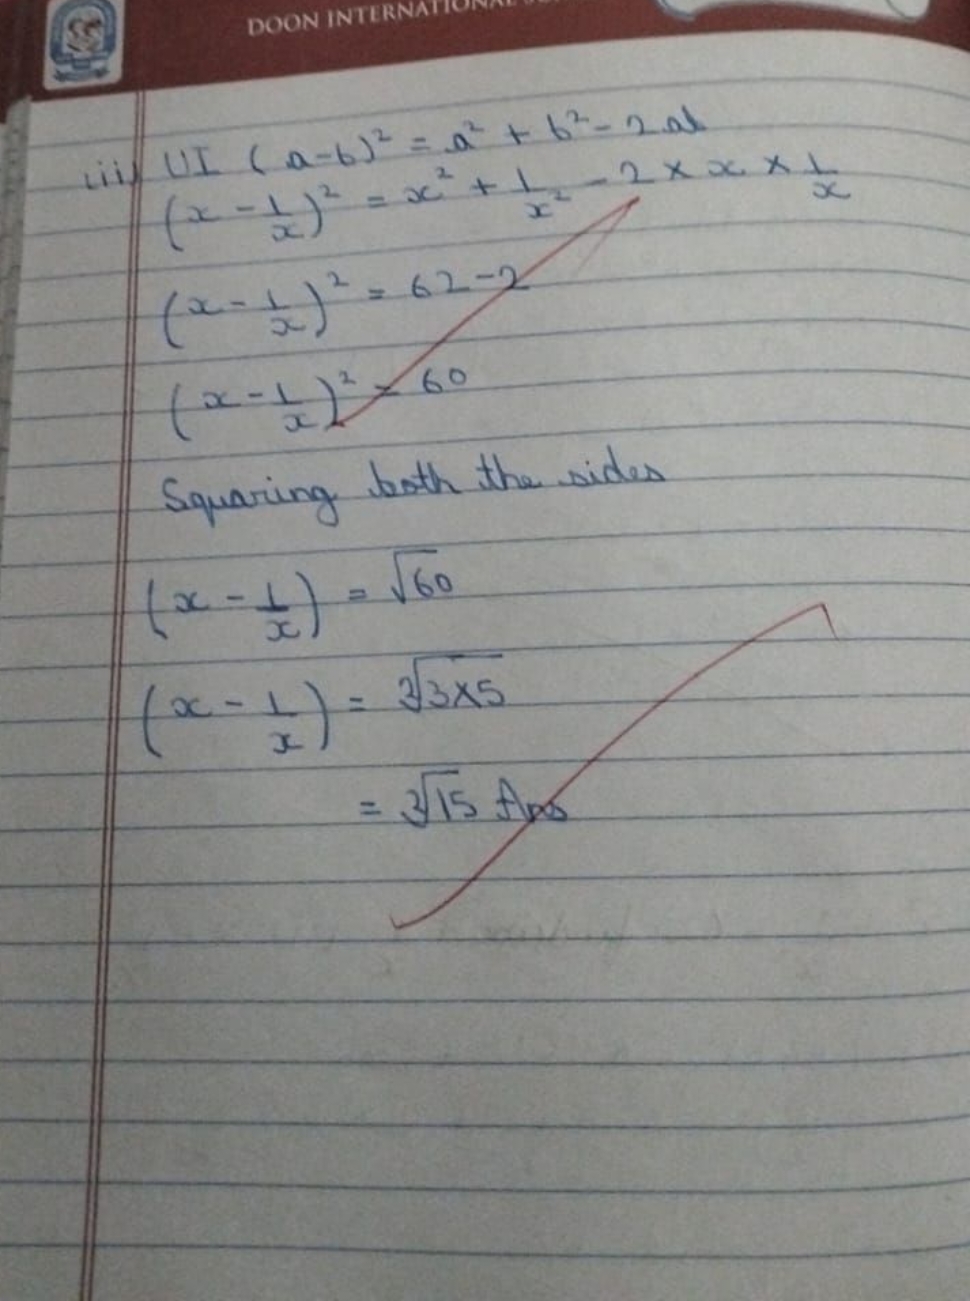 DOON INTERNATIONAL
iii) UI (a-b)² = a² + b² - 2ab
(x - 1/x)² = x² + 1/x² - 2 × x × 1/x
(x - 1/x)² = 62 - 2
(x - 1/x)² = 60
Squaring both the sides
(x - 1/x) = √60
(x - 1/x) = 2√3×5
= 2√15 Ans